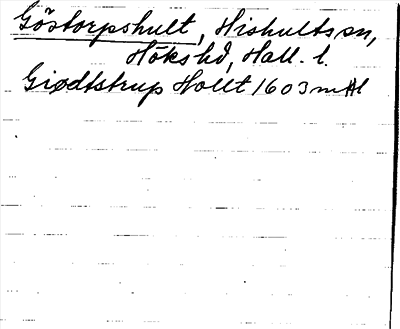 Göstorpshult, Hishults sn,
Hökshd, Hall. l.
Giødtstrup Hollt 1603 mtl